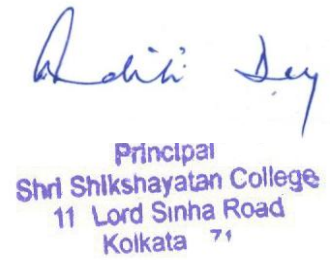 Aditi Dey
Principal
Shri Shikshayatan College
11 Lord Sinha Road
Kolkata 71